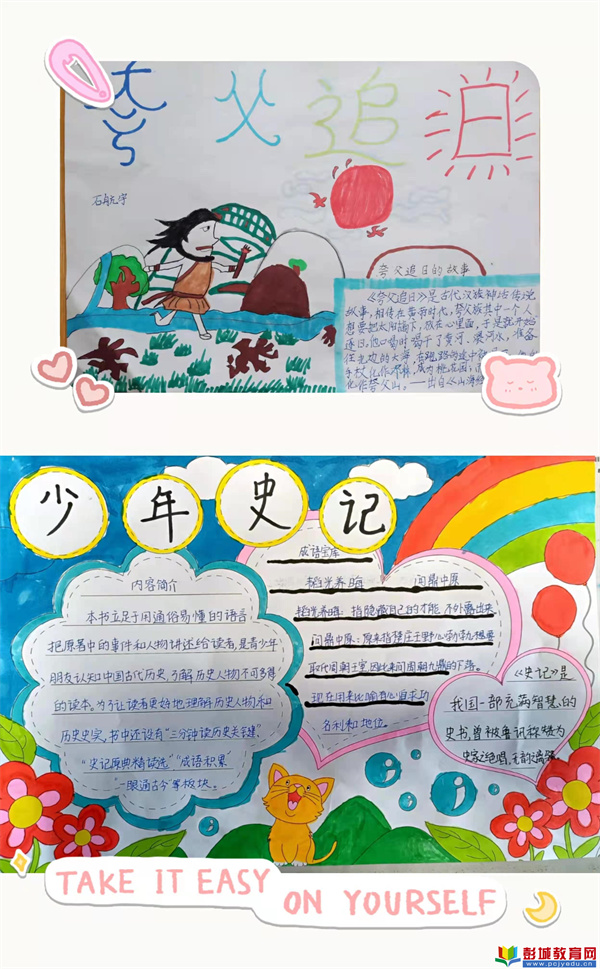 夸父追日
石航宇
夸父追日的故事
《夸父追日》是古代汉族神话传说
故事，相传在黄帝时代，夸父族其中一个人
想要把太阳摘下，放在心里面，于是就开始
逐日，他口渴时喝干了黄河、渭河水，准备
往北边的大海
手杖化作
化作夸父山。——出自《山海经
少年史记
内容简介
本书立足于用通俗易懂的语言
把原著中的事件和人物讲述给读者，是青少年
朋友认知中国古代历史、了解历史人物不可多得
的读本。为了让读者更好地理解历史人物和
历史史实，书中还设有“三分钟读历史关键”
“史记原典精读选”“成语积累”
“一眼通古今”等板块。
成语宝库
韬光养晦 问鼎中原
韬光养晦：指隐藏自己的才能，不外露出来
问鼎中原：原来指楚庄王野心勃勃，想要
取代周朝王室，因此来问周朝九鼎的下落。
现在用来比喻有心追求功
名利和地位。
《史记》是
我国一部充满智慧的
史书，曾被鲁迅称赞为
史家之绝唱，无韵之离骚
TAKE IT EASY
ON YOURSELF
彭城教育网
www.pcjyedu.cn